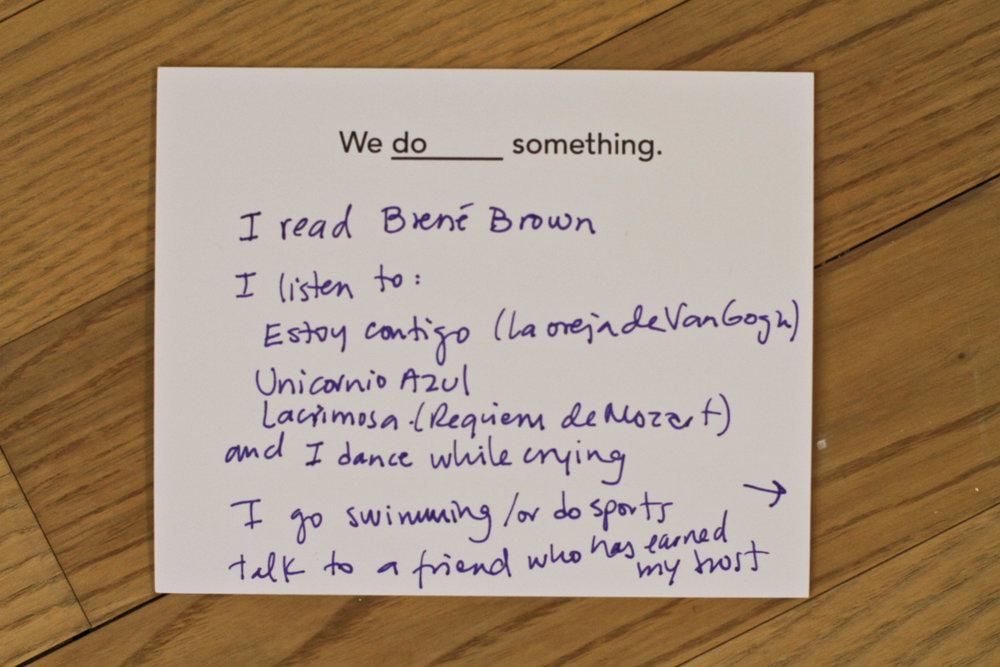 We do____ something.
I read Brené Brown
I listen to:
Estoy contigo (La oreja de Van Gogh)
Unicornio Azul
Lacrimosa. (Requiem de Mozart)
and I dance while crying
I go swimming /or do sports →
talk to a friend who has earned
my trust